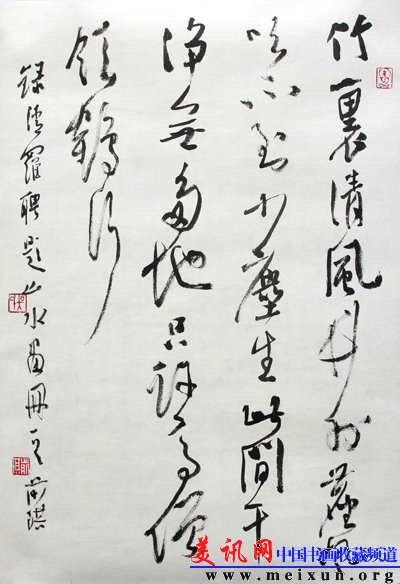 竹裏清風竹外塵風
吹不到少塵生此間干
净無多地只許高僧
領鶴行
録清羅聘題山水畫冊
美讯网 中国书画收藏频道
www.meixun.org